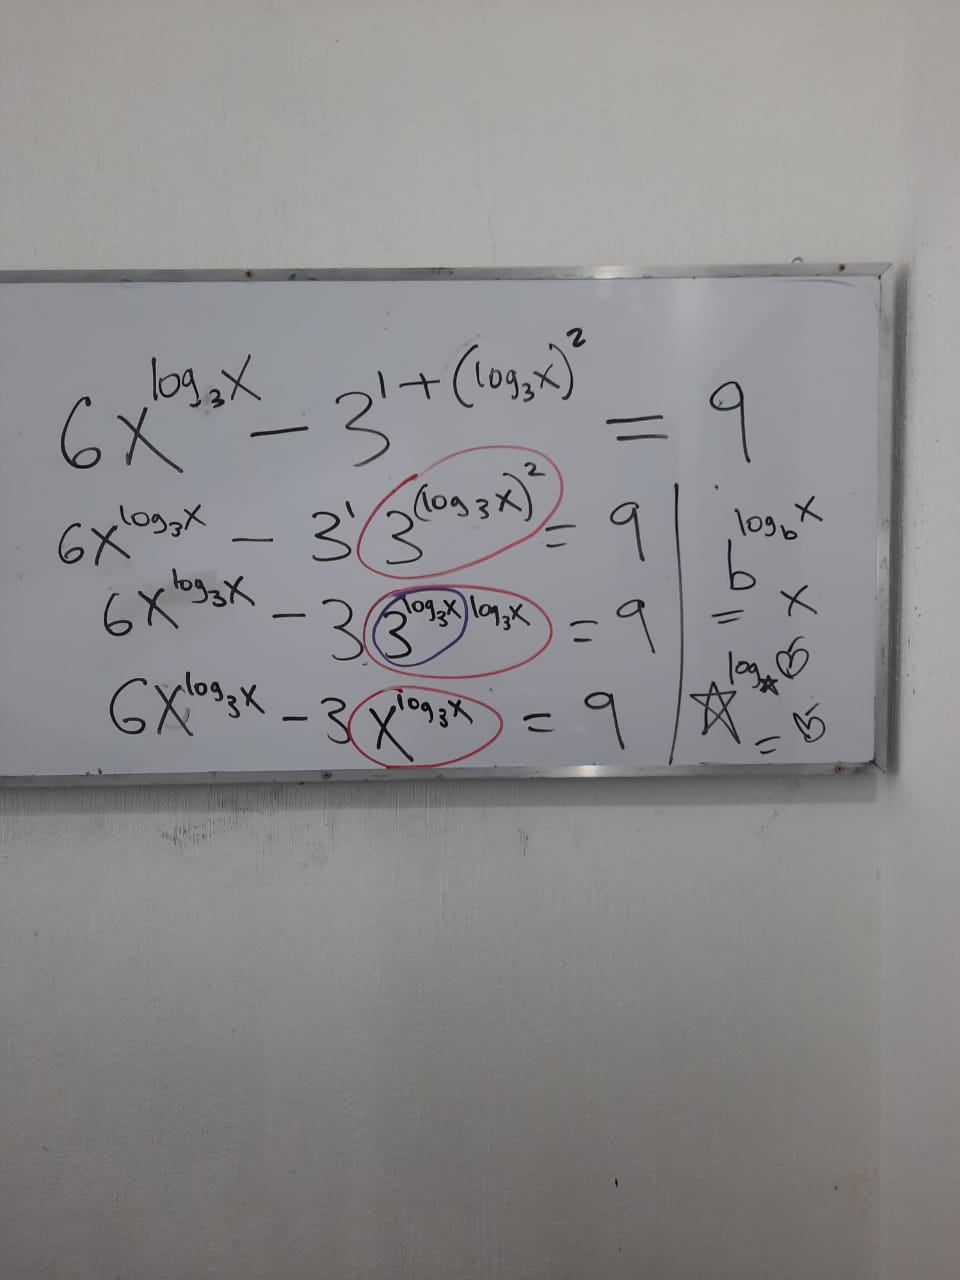 6x^(log₃x) − 3^(1+(log₃x)²) = 9
6x^(log₃x) − 3¹ 3^((log₃x)²) = 9
6x^(log₃x) − 3 3^(log₃x log₃x) = 9
6x^(log₃x) − 3 x^(log₃x) = 9
b^(log_b x)
= x
☆^(log_☆ ♡)
= ♡